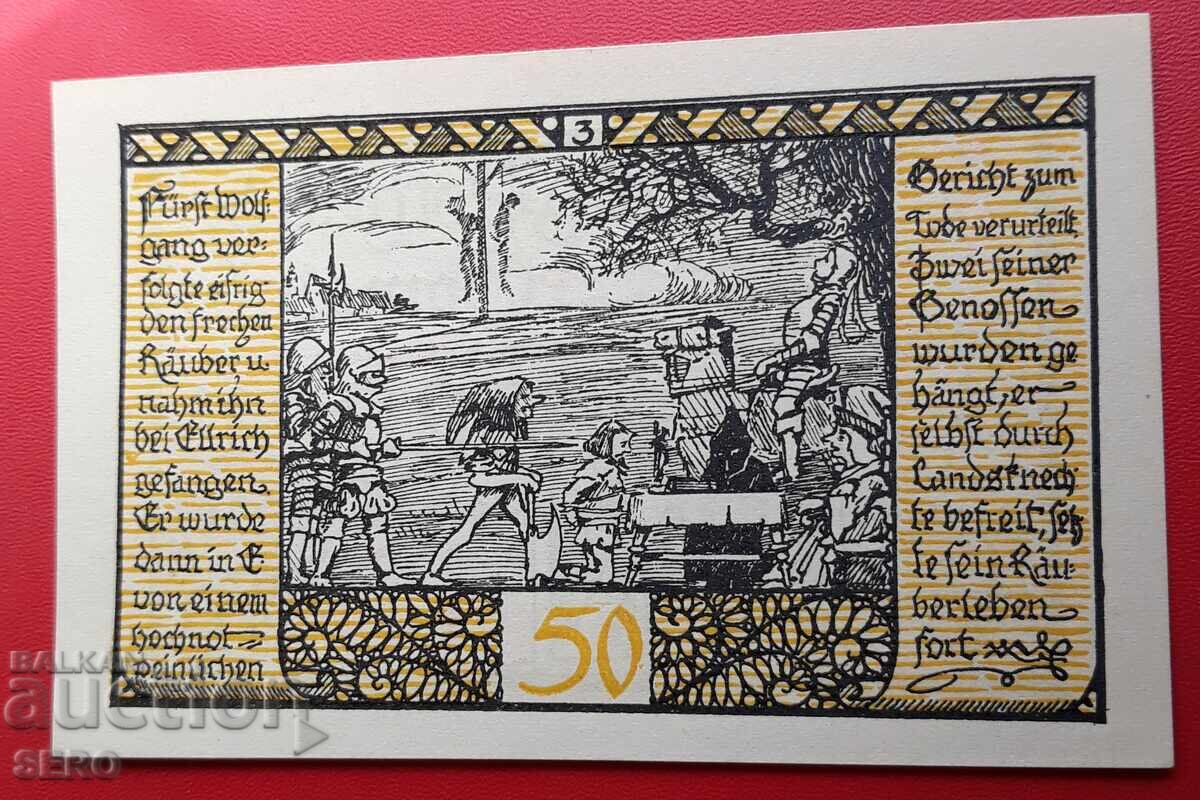 3
Fürst Wolf-
gang ver-
folgte eifrig
den frechen
Räuber u.
nahm ihn
bei Ellrich
gefangen.
Er wurde
dann in E.
von einem
hochnot-
peinlichen
Gericht zum
Tode verurteilt.
Zwei seiner
Genossen
wurden ge
hängt, er
selbst durch
Landsknech
te befreit, setz
te sein Räu-
berleben
fort
50
BALKAN
auction
SERO